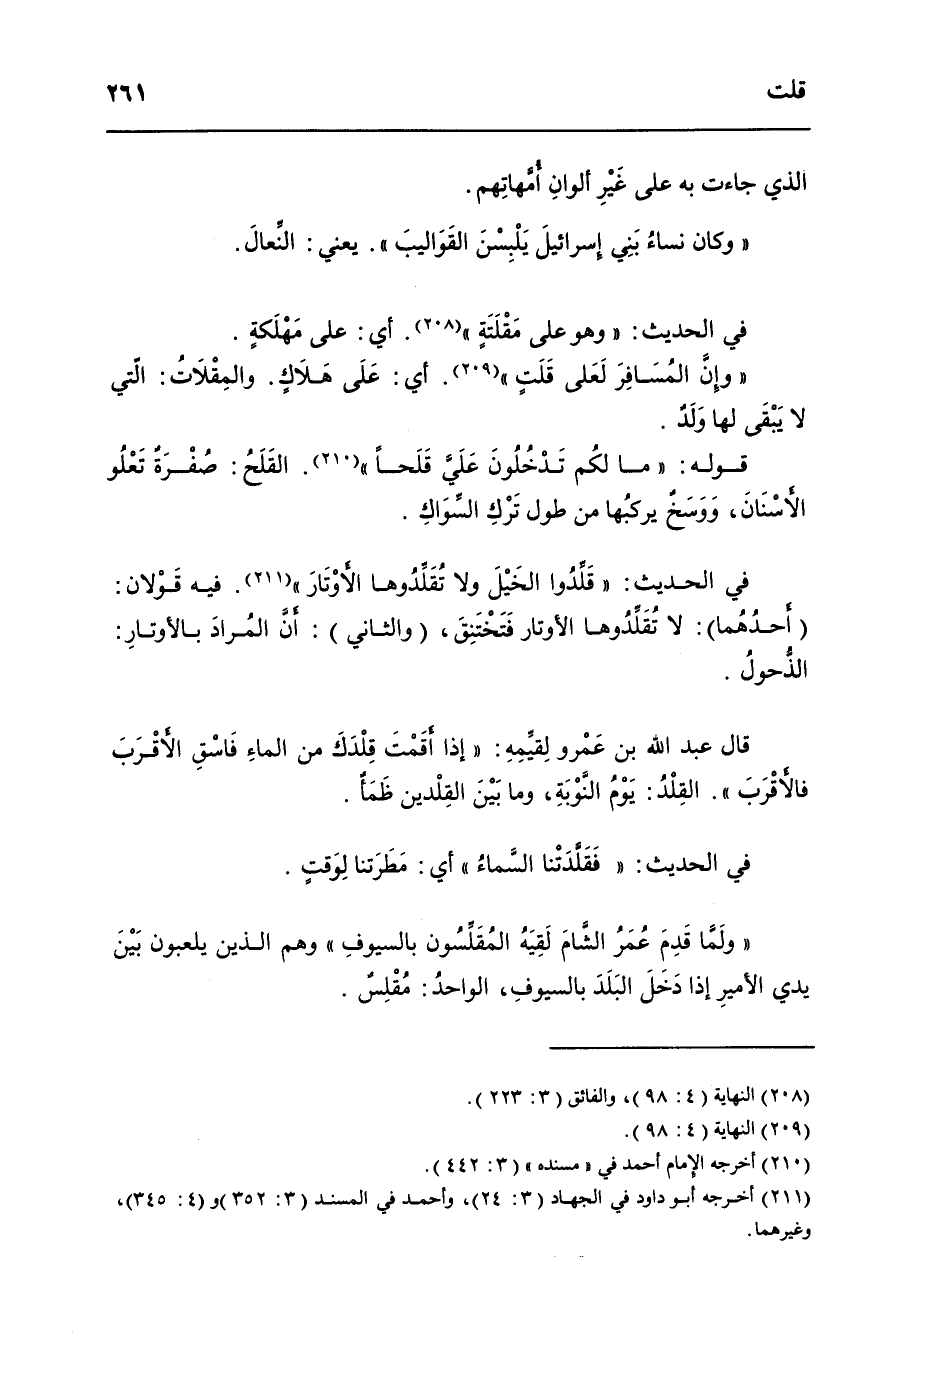 قلت ٢٦١
الذي جاءت به على غَيْرِ ألوانِ أُمَّهاتِهم .
« وكان نساءُ بَنِي إسرائيلَ يَلْبِسْنَ القَوَاليبَ ». يعني : النِّعالَ .
في الحديث : « وهو على مَقْلَتَةٍ »(٢٠٨). أي : على مَهْلَكةٍ .
« وإنَّ المُسَافِرَ لَعَلى قَلَتٍ »(٢٠٩). أي : عَلَى هَلَاكٍ. والمِقْلَاتُ : الّتي
لا يَبْقَى لها وَلَدٌ .
قوله : « ما لكُم تَدْخُلُونَ عَلَيَّ قَلَحاً »(٢١٠). القَلَحُ : صُفْرَةٌ تَعْلُو
الأَسْنَانَ، وَوَسَخٌ يركبُها من طول تَرْكِ السِّوَاكِ .
في الحديث : « قَلِّدُوا الخَيْلَ ولا تُقَلِّدُوها الأَوْتَارَ »(٢١١). فيه قَوْلان :
( أَحدُهُما) : لا تُقَلِّدُوها الأوتار فَتَخْتَنِقَ ، ( والثاني ) : أنَّ المُرادَ بالأوتارِ :
الذُّحولُ .
قال عبد الله بن عَمْرو لِقيِّمِهِ : « إذا أَقَمْتَ قِلْدَكَ من الماءِ فَاسْقِ الأَقْرَبَ
فالأَقْرَبَ ». القِلْدُ : يَوْمُ النَّوْبَةِ، وما بَيْنَ القِلْدين ظَمَأٌ .
في الحديث : « فَقَلَّدَتْنا السَّماءُ » أي : مَطَرَتنا لِوَقتٍ .
« ولَمَّا قَدِمَ عُمَرُ الشَّامَ لَقِيَهُ المُقَلِّسُون بالسيوفِ » وهم الذين يلعبون بَيْنَ
يدي الأميرِ إذا دَخَلَ البَلَدَ بالسيوفِ، الواحدُ : مُقْلِسٌ .
(٢٠٨) النهاية ( ٤ : ٩٨ )، والفائق ( ٣ : ٢٢٣ ).
(٢٠٩) النهاية ( ٤ : ٩٨ ).
(٢١٠) أخرجه الإمام أحمد في « مسنده » ( ٣ : ٤٤٢ ).
(٢١١) أخرجه أبو داود في الجهاد ( ٣ : ٢٤)، وأحمد في المسند ( ٣ : ٣٥٢ )و (٤ : ٣٤٥)،
وغيرهما .